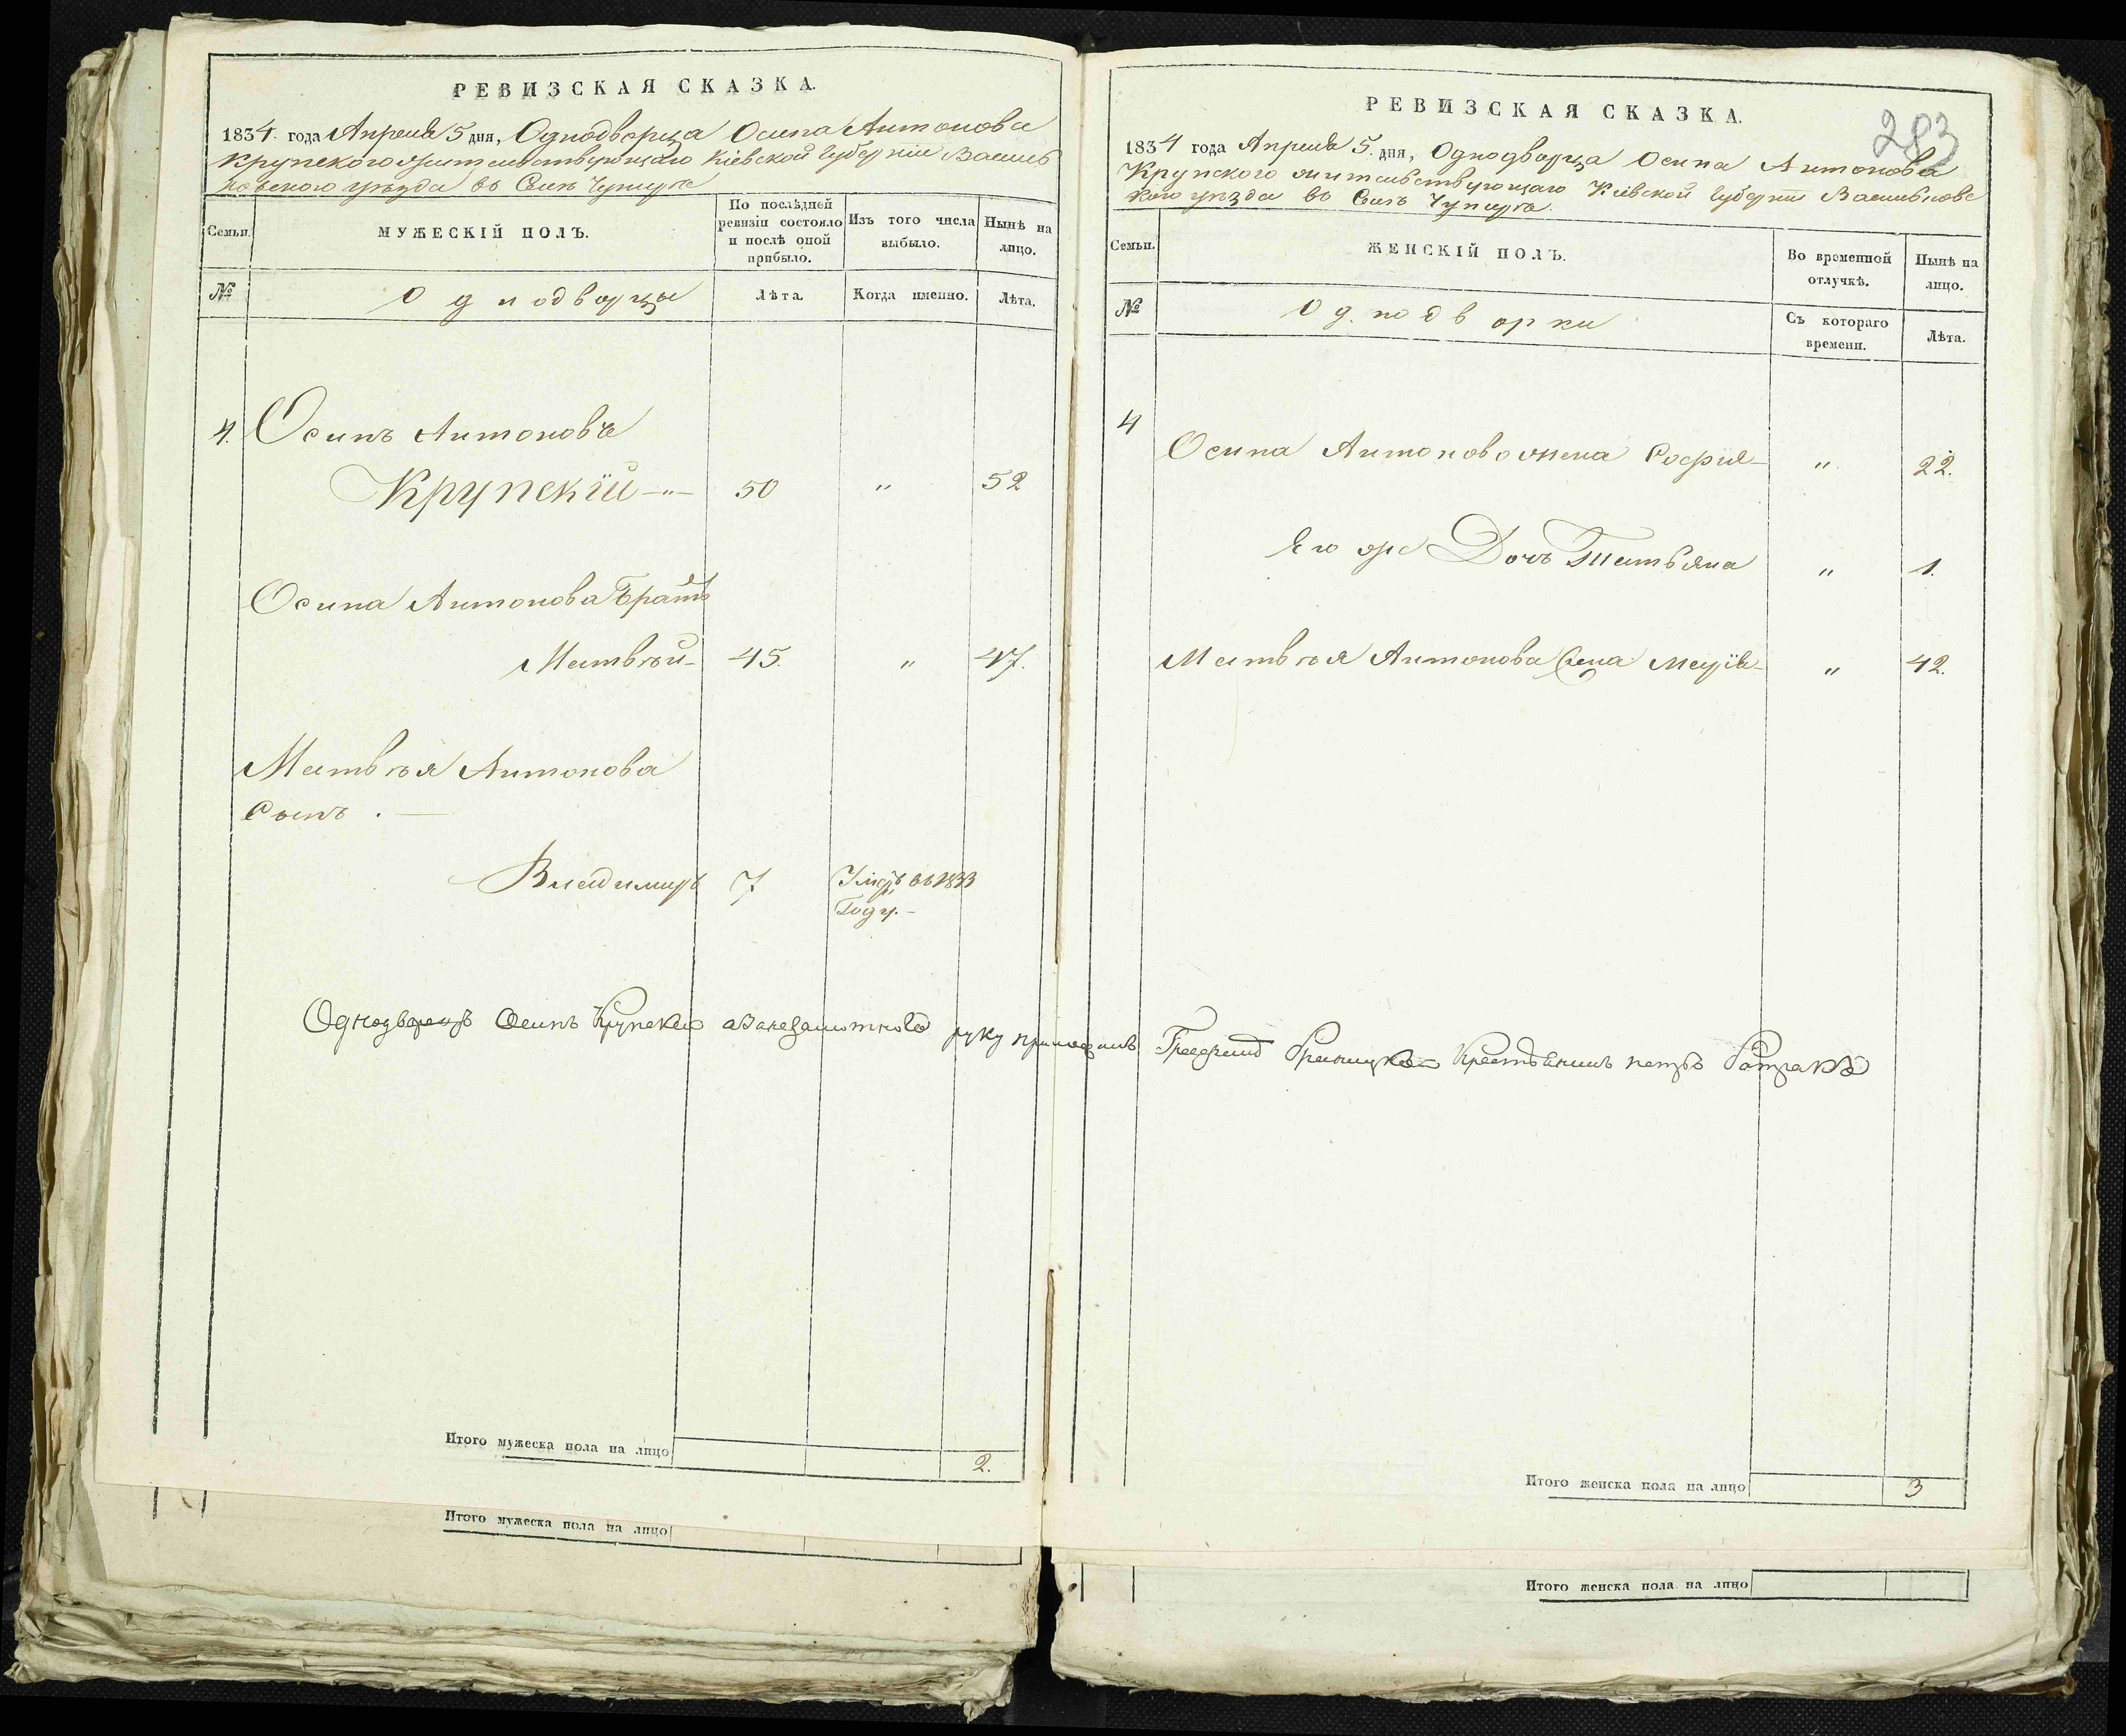 РЕВИЗСКАЯ СКАЗКА.
1834 года Апреля 5 дня, Однодворца Осипа Антонова
Крупского жительствующаго Кіевской Губерніи Василь
ковского уезда въ Селѣ Чупирѣ
Семьи.
МУЖЕСКІЙ ПОЛЪ.
По послѣдней
ревизіи состояло
и послѣ оной
прибыло.
Изъ того числа
выбыло.
Нынѣ на
лицо.
№
Однодворцы
Лѣта.
Когда именно.
Лѣта.
4. Осипъ Антоновъ
Крупскій 50 " 52
Осипа Антонова Братъ
Матвѣй 45. " 47.
Матвѣя Антонова
Сынъ.
Владимиръ 7 Умеръ въ 1833
Году.
Однодворецъ Осипъ Крупский а вместо руку приложилъ
Итого мужеска пола на лицо 2.
Итого мужеска пола на лицо
РЕВИЗСКАЯ СКАЗКА.
283
1834 года Апреля 5. дня, Однодворца Осипа Антонова
Крупского жительствующаго Кіевской Губерніи Васильковс
кого уезда въ Селѣ Чупирѣ.
Семьи.
ЖЕНСКІЙ ПОЛЪ.
Во временной
отлучкѣ.
Нынѣ на
лицо.
№
Однодворки
Съ котораго
времени.
Лѣта.
4
Осипа Антонова жена София " 22.
Его же Дочь Татьяна " 1.
Матвѣя Антонова жена Марія " 42.
Крестьянинъ петръ
Итого женска пола на лицо 3
Итого женска пола на лицо